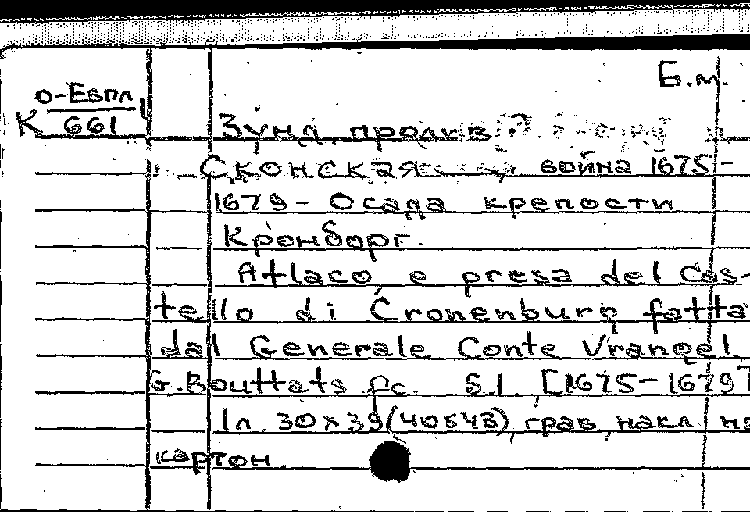 Б.м.
О-Евпл
К 661
Зунд, пролив
Сконская война 1675-
1679 - Осада крепости
Кронборг.
Atlaco e presa del Cas-
tello di Cronenburg fatta
dal Generale Conte Vrangel
G. Bouttats fc. S.l. [1675-1679]
1л. 30x39 (40Б43), грав, накл на
картон.